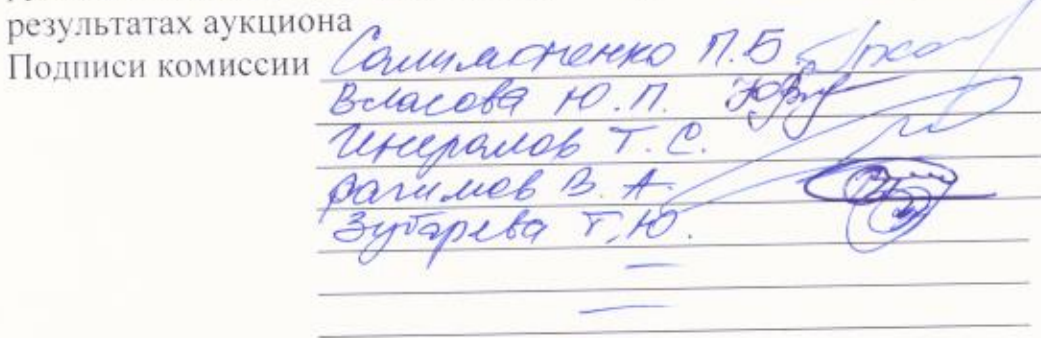 результатах аукциона
Подписи комиссии Салимоненко П.Б
Власова Ю.П.
Генералов Т.С.
Рагимов В.А.
Зубарева Т.Ю.
—
—